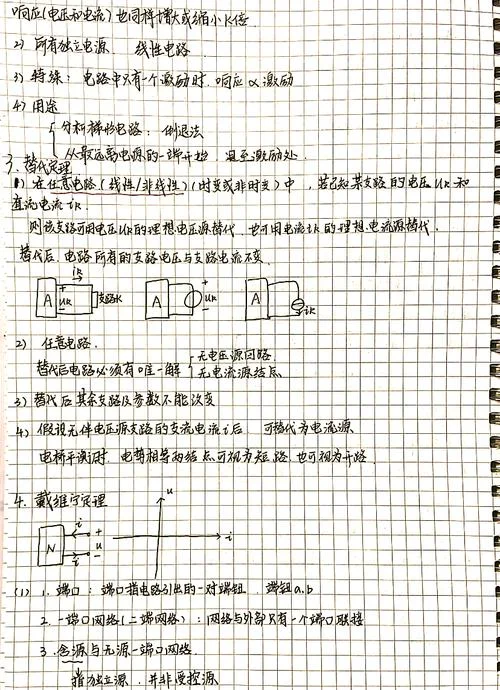 响应(电压和电流)也同样增大或缩小K倍.
2) 所有独立电源 线性电路
3) 特殊: 电路中只有一个激励时 响应∝激励
4) 用途
分析梯形电路: 倒退法
从最远离电源的一端开始 退至激励处
3. 替代定理
1) 在任意电路(线性/非线性)(时变或非时变)中, 若已知某支路的电压 UK 和
直流电流 iK.
则该支路可用电压UK的理想电压源替代, 也可用电流iK的理想电流源替代.
替代后, 电路所有的支路电压与支路电流不变.
A iK + UK - 支路K
A + UK -
A iK
2) 任意电路.
无电压源回路
替代后电路必须有唯一解
无电流源结点
3) 替代后其余支路及参数不能改变
4) 假设无伴电压源支路的支流电流i后 可替代为电流源
电桥平衡时 电势相等两结点可视为短路.也可视为开路.
4. 戴维宁定理
N i + u - i
u i
(1) 1. 端口: 端口指电路引出的一对端钮. 端钮a.b
2. 一端口网络(二端网络): 网络与外部只有一个端口联接
3. 含源与无源一端口网络.
指独立源. 并非受控源